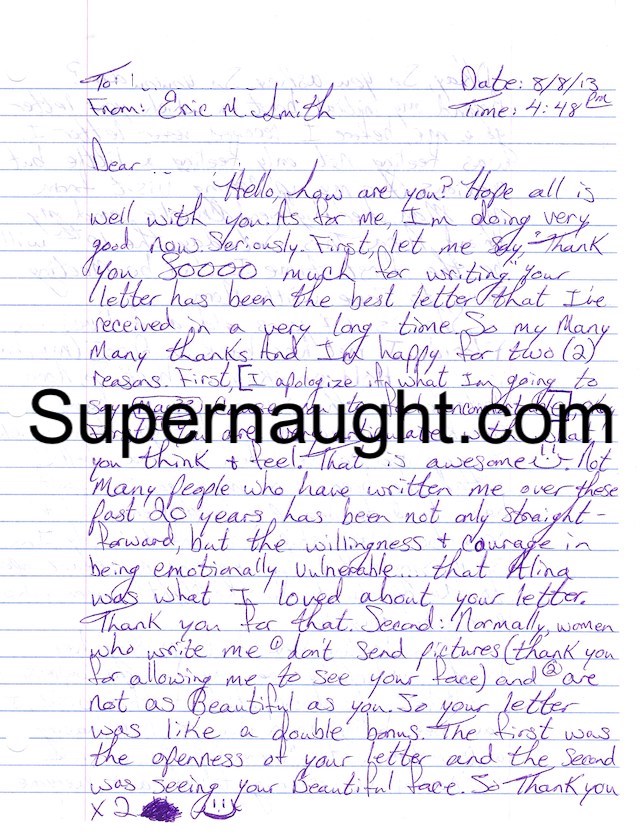 To:
Date: 8/8/13
From: Eric M. Smith
Time: 4:48 pm
Dear
Hello, how are you? Hope all is
well with you. As for me, I'm doing very
good now. Seriously. First, let me say, "Thank
you 80000 much for writing. Your
letter has been the best letter that I've
received in a very long time. So my Many
Many thanks. And I'm happy for two (2)
reasons. First, [I apologize if what I'm going to
Supernaught.com
you think & feel. That is awesome. Not
Many people who have written me over these
past 20 years, has been not only straight-
forward, but the willingness & courage in
being emotionally vulnerable.... that Alina
was what I loved about your letter.
Thank you for that. Second: Normally, women
who write me ① don't send pictures (thank you
for allowing me to see your face) and ② are
not as Beautiful as you. So your letter
was like a double bonus. The first was
the openness of your letter and the second
was seeing your Beautiful face. So Thank you
x 2